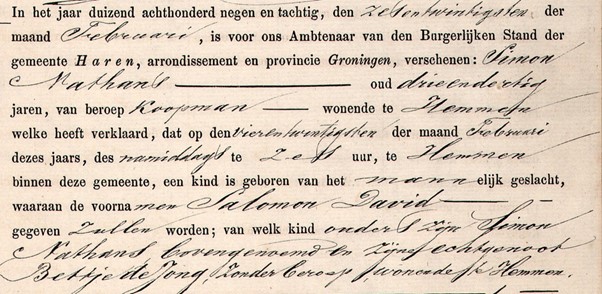 In het jaar duizend achthonderd negen en tachtig, den zesentwintigsten der
maand Februari, is voor ons Ambtenaar van den Burgerlijken Stand der
gemeente Haren, arrondissement en provincie Groningen, verschenen: Simon
Nathans oud drieendertig
jaren, van beroep Koopman wonende te Hemmen
welke heeft verklaard, dat op den vierentwintigsten der maand Februari
dezes jaars, des namiddags te Zes uur, te Hemmen
binnen deze gemeente, een kind is geboren van het mannelijk geslacht,
waaraan de voornamen Salomon David
gegeven zullen worden; van welk kind ouders zijn Simon
Nathans bovengenoemd en zijne echtgenoot
Bettje de Jong, zonder beroep, wonende te Hemmen.